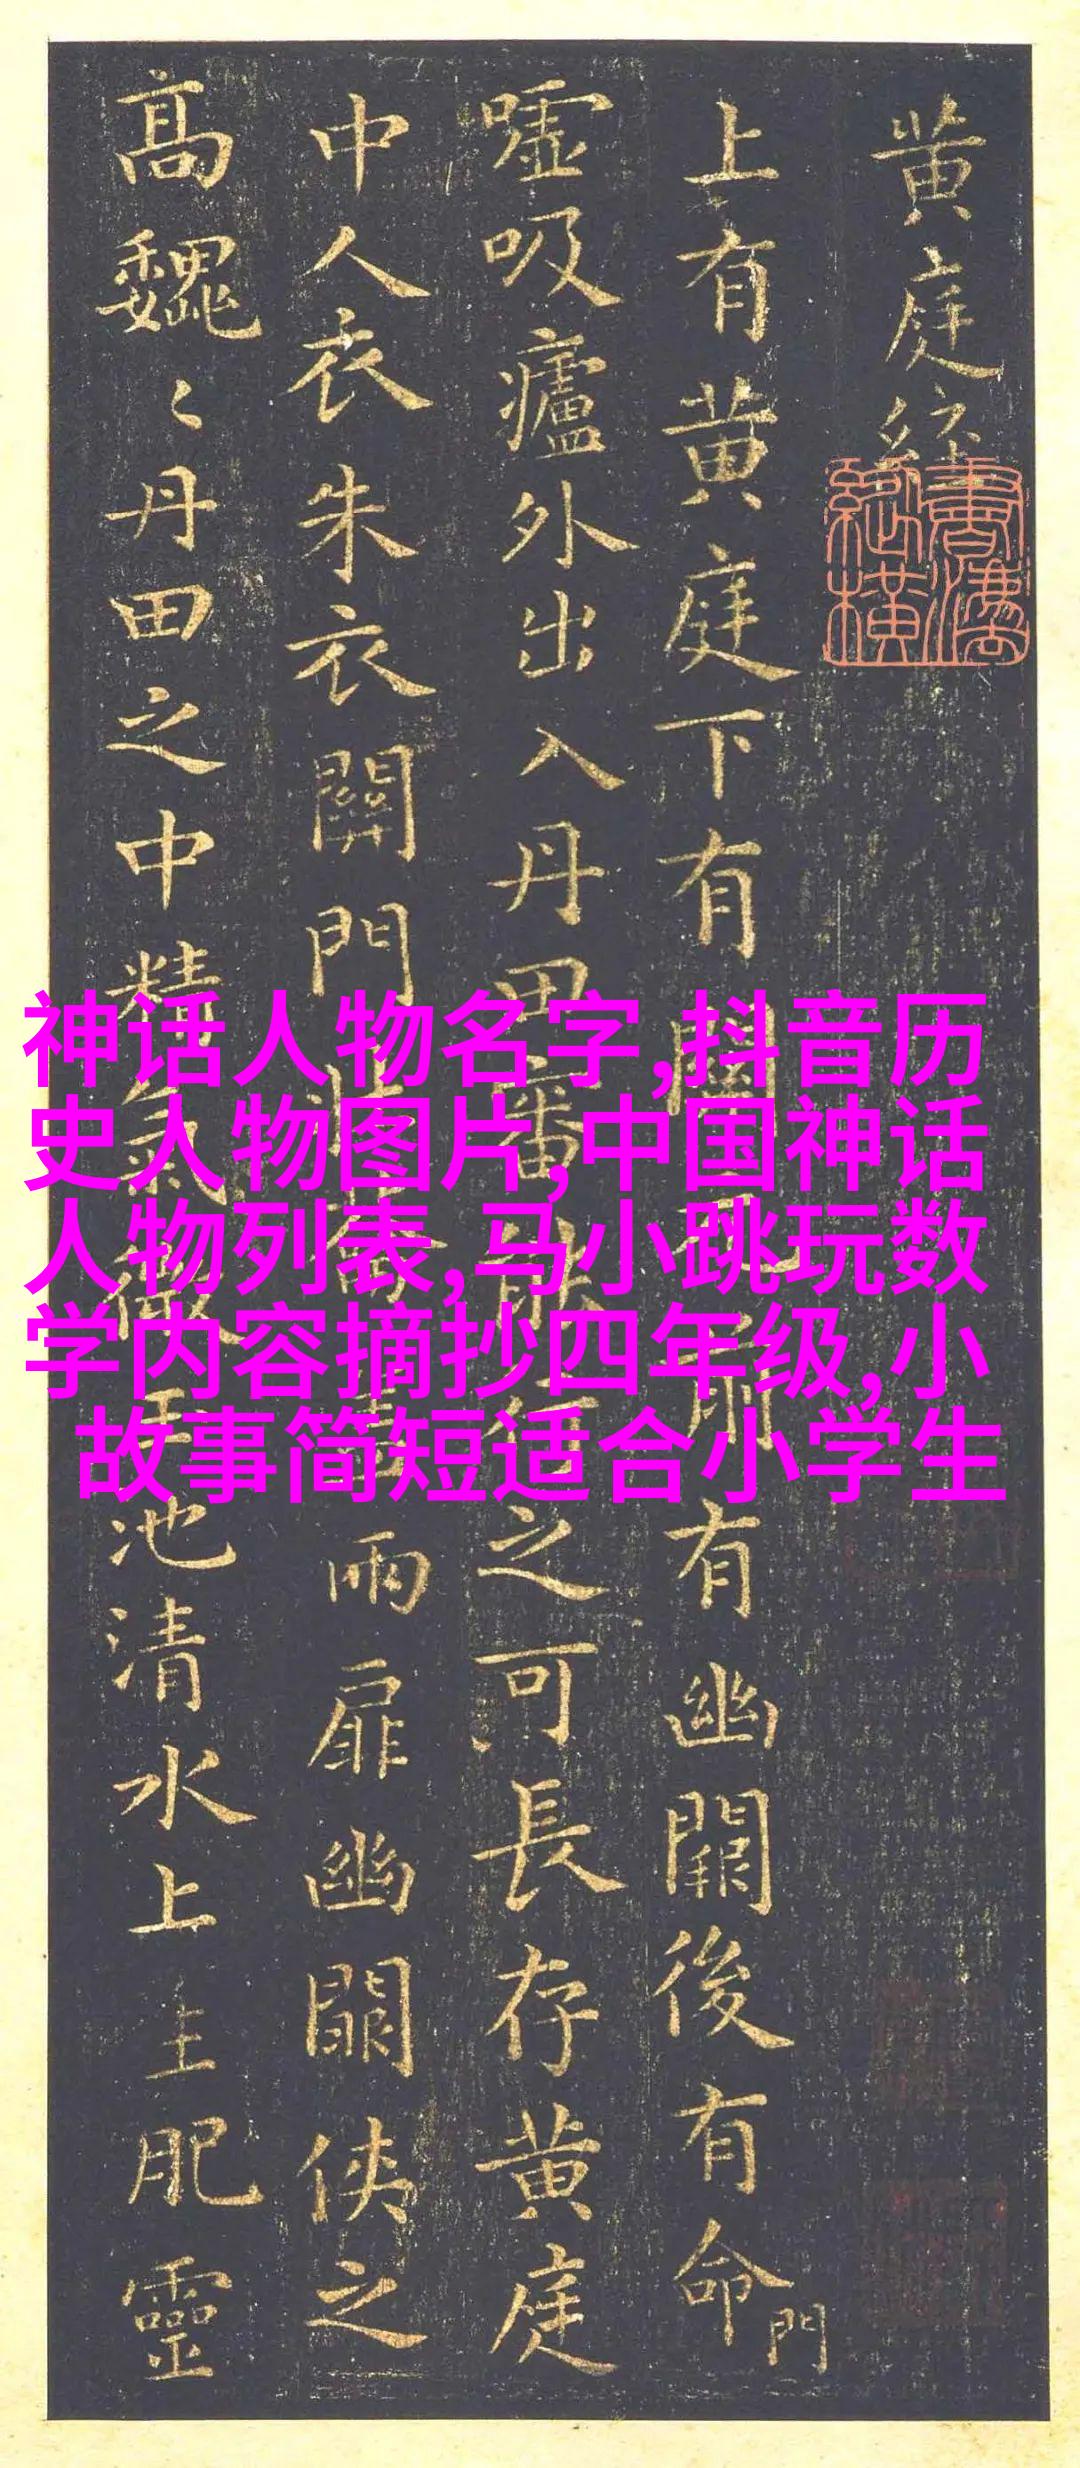 黄庭經
上有黄庭下有關元前有幽闕後有命門
嘘吸廬外出入丹田審能行之可長存黄庭
中人衣朱衣關門壯籥蓋兩扉幽闕俠之
高魏〻丹田之中精氣微玉池清水上生肥靈
書濤縱横
神话人物名字,抖音历
史人物图片,中国神话
人物列表,马小跳玩数
学内容摘抄四年级,小
故事简短适合小学生